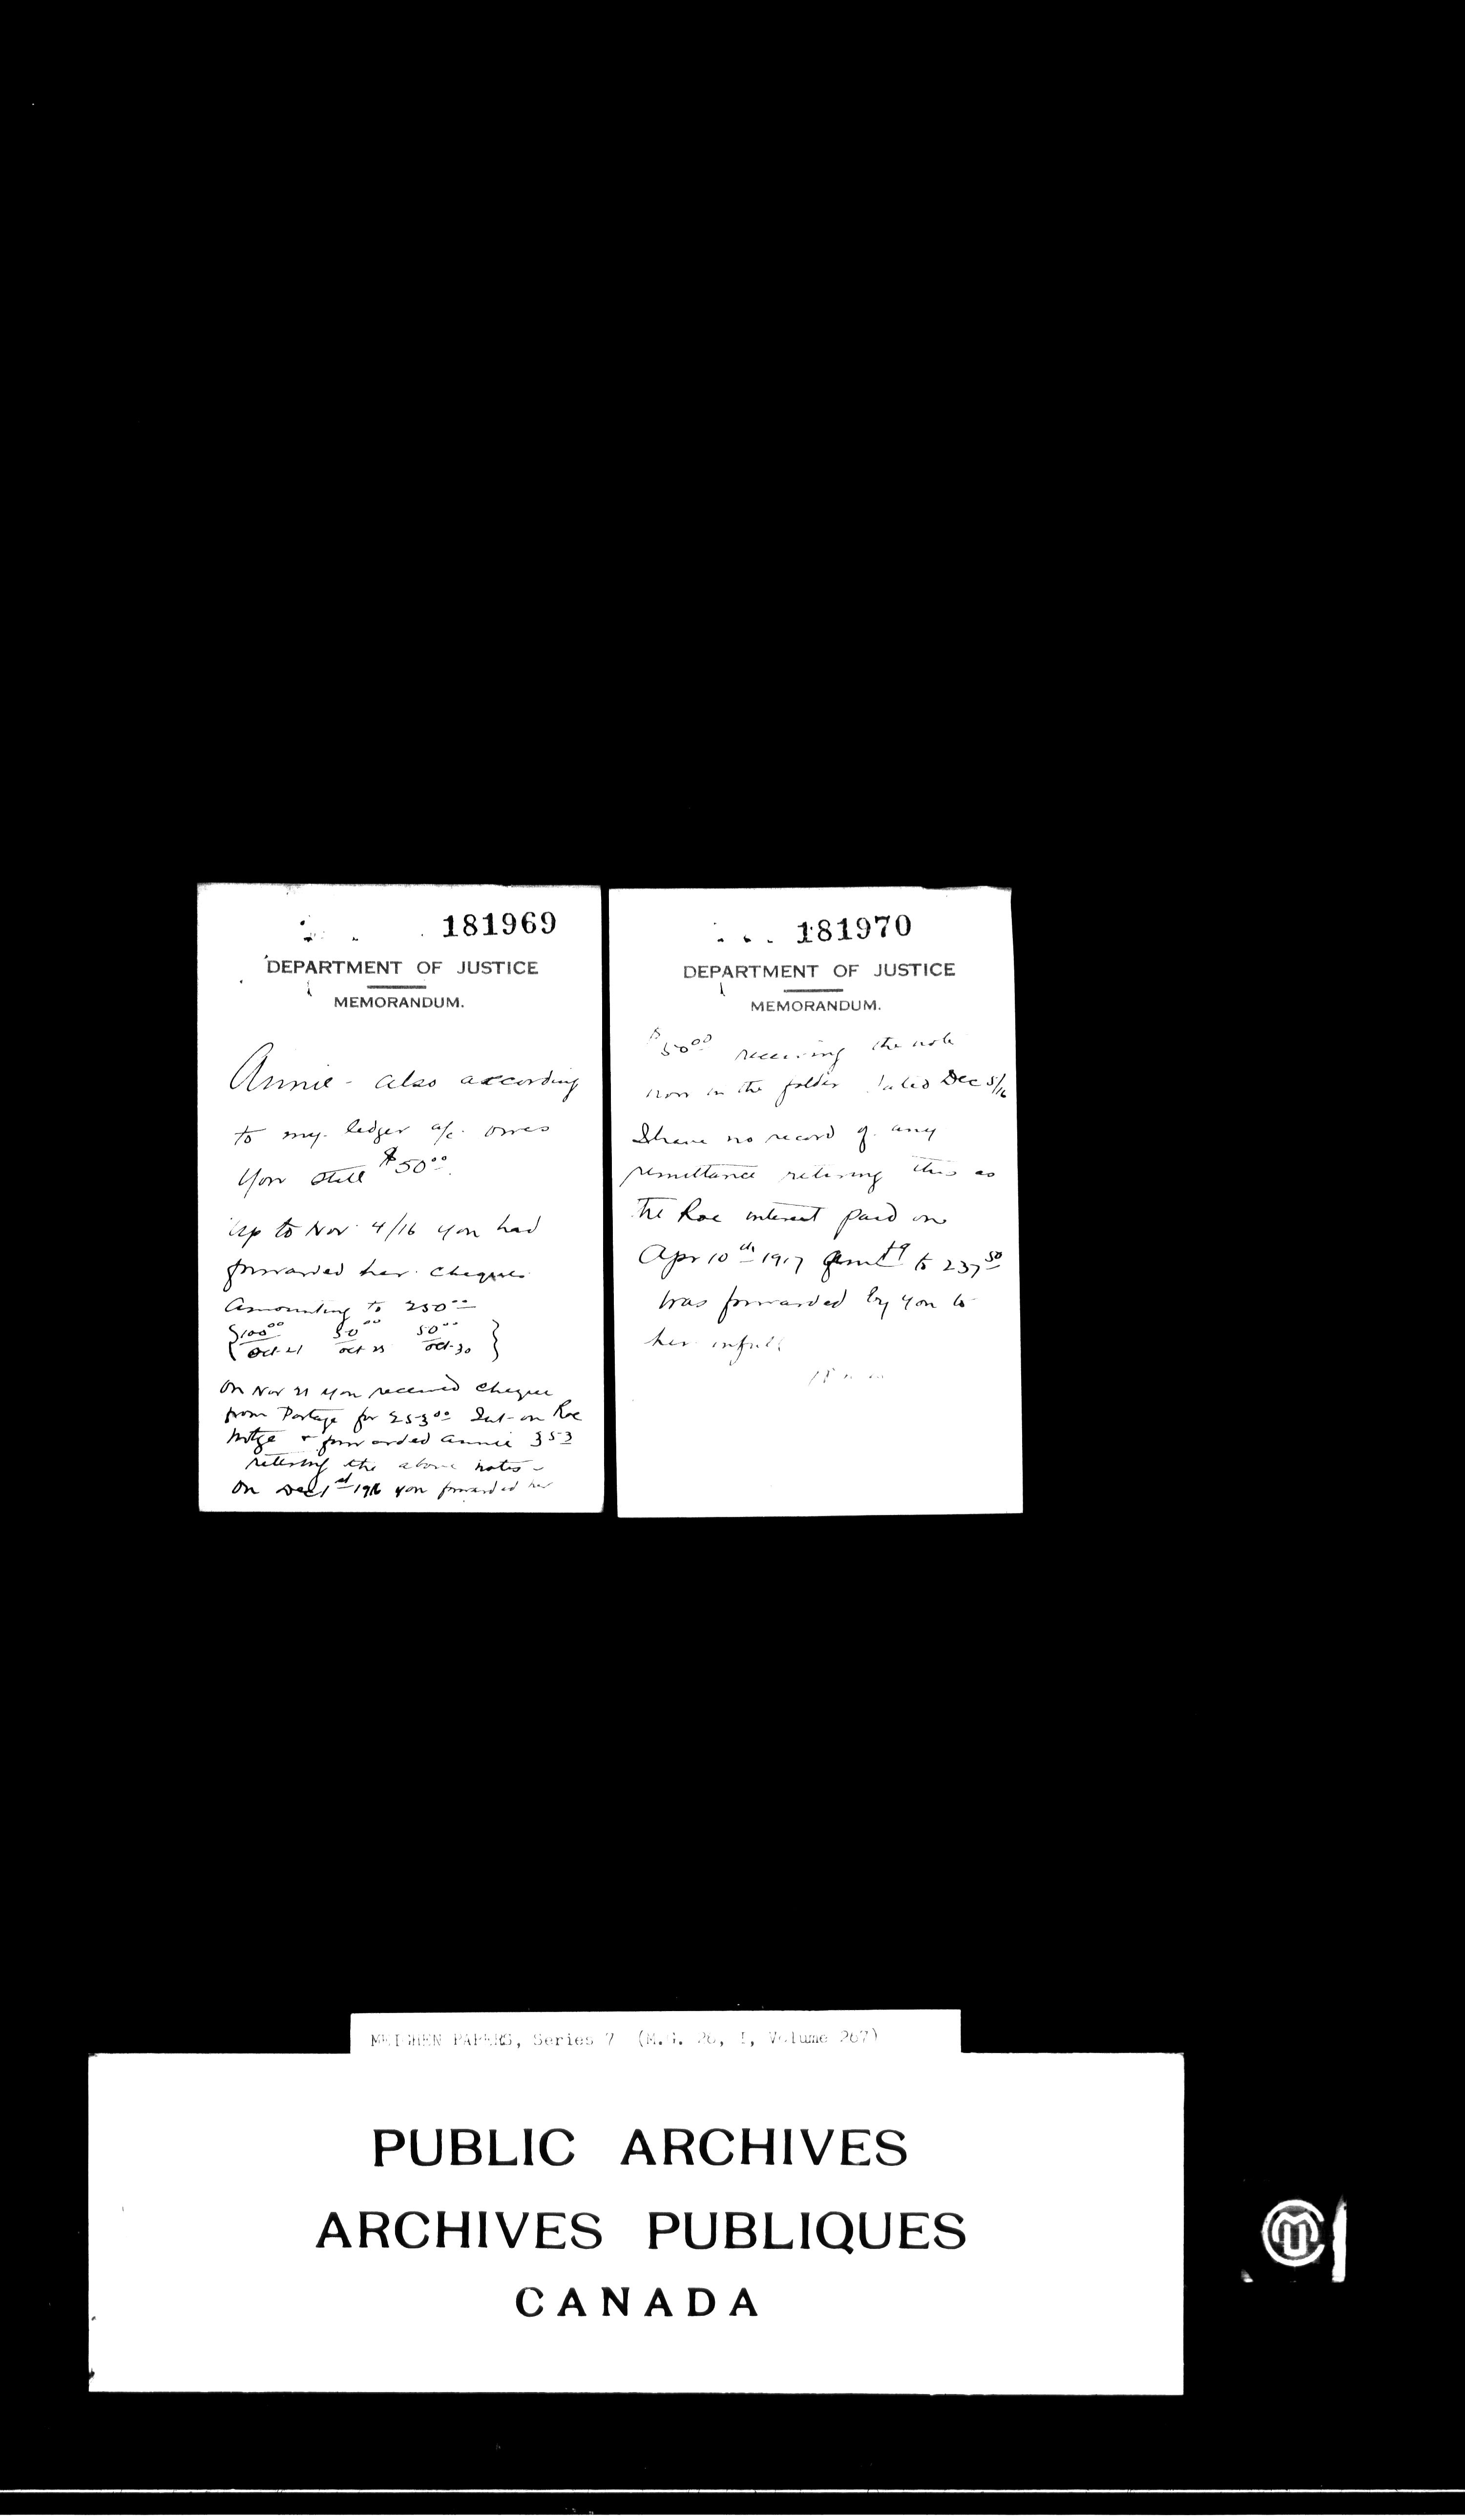 181969
DEPARTMENT OF JUSTICE
MEMORANDUM.
Annie - also according
to my ledger a/c. owes
you still $50.00.
Up to Nov. 4/16 you had
forwarded her cheques
amounting to 250.00
100.00 50.00 50.00
Oct 21 Oct 25 Oct 30
On Nov 21 you received cheque
from Portage for 253.00 Int- on Roe
Mtge & forwarded Annie 353
retiring the above notes -
On Dec 1st 1916 you forwarded her
181970
DEPARTMENT OF JUSTICE
MEMORANDUM.
$50.00 receiving the note
now in the folder dated Dec 5/16
I have no record of any
remittance retiring this as
the Roe interest paid on
Apr 10th 1917 amtg to 237.50
was forwarded by you to
her in full
MEIGHEN PAPERS, Series 7 (M.G. 26, I, Volume 267)
PUBLIC ARCHIVES
ARCHIVES PUBLIQUES
CANADA